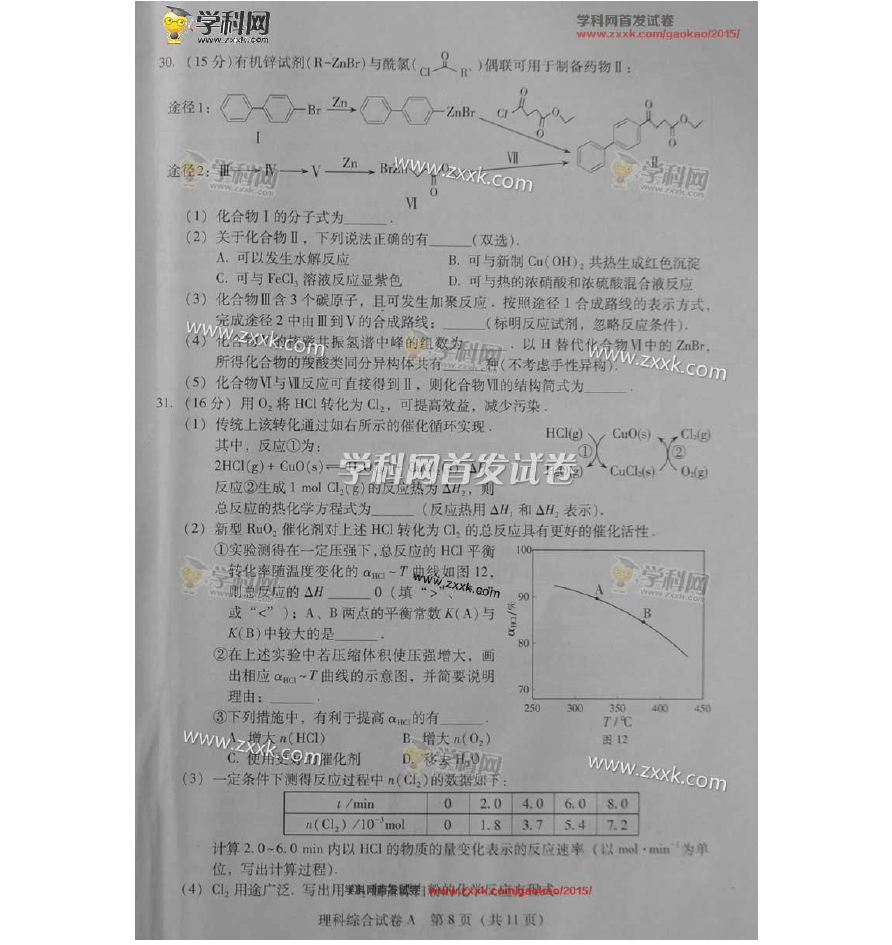 学科网
www.zxxk.com
学科网首发试卷
www.zxxk.com/gaokao/2015/
30. (15 分)有机锌试剂(R-ZnBr)与酰氯( Cl O R' )偶联可用于制备药物Ⅱ：
途径1： Br Zn ZnBr Cl O O O O O O
Ⅰ Ⅶ Ⅱ
途径2：Ⅲ Ⅳ Ⅴ Zn O
Ⅵ
www.zxxk.com
学科网
www.zxxk.com
学科网
www.zxxk.com
(1) 化合物Ⅰ的分子式为______.
(2) 关于化合物Ⅱ，下列说法正确的有______(双选).
A. 可以发生水解反应
B. 可与新制 Cu(OH)₂ 共热生成红色沉淀
C. 可与 FeCl₃ 溶液反应显紫色
D. 可与热的浓硝酸和浓硫酸混合液反应
(3) 化合物Ⅲ含 3 个碳原子，且可发生加聚反应．按照途径 1 合成路线的表示方式，
完成途径 2 中由Ⅲ到Ⅴ的合成路线：______(标明反应试剂，忽略反应条件).
(4) 峰的组数为______．以 H 替代化合物Ⅵ中的 ZnBr，
所得化合物的羧酸类同分异构体共有______种(不考虑手性异构).
www.zxxk.com
学科网
www.zxxk.com
(5) 化合物Ⅵ与Ⅶ反应可直接得到Ⅱ，则化合物Ⅶ的结构简式为______.
31. (16 分) 用 O₂ 将 HCl 转化为 Cl₂，可提高效益，减少污染．
(1) 传统上该转化通过如右所示的催化循环实现．
其中，反应①为：
2HCl(g) + CuO(s) ⇌
反应②生成 1 mol Cl₂(g)的反应热为 ΔH₂，则
总反应的热化学方程式为______（反应热用 ΔH₁ 和 ΔH₂ 表示）。
HCl(g) CuO(s) Cl₂(g)
① ②
CuCl₂(s) O₂(g)
学科网首发试卷
(2) 新型 RuO₂ 催化剂对上述 HCl 转化为 Cl₂ 的总反应具有更好的催化活性．
①实验测得在一定压强下，总反应的 HCl 平衡
转化率随温度变化的 αHCl ~ T 曲线如图 12，
则总反应的 ΔH ______ 0（填“>”、
或“<”）；A、B 两点的平衡常数 K(A)与
K(B)中较大的是______．
②在上述实验中若压缩体积使压强增大，画
出相应 αHCl ~ T 曲线的示意图，并简要说明
理由：______．
③下列措施中，有利于提高 αHCl 的有______．
A. 增大 n(HCl)
B. 增大 n(O₂)
C. 使用 催化剂
D. 移去 H₂O
100
90
80
70
αHCl/%
A
B
250 300 350 400 450
T/℃
图 12
学科网
www.zxxk.com
www.zxxk.com
学科网
www.zxxk.com
www.zxxk.com
学科网
www.zxxk.com
(3) 一定条件下测得反应过程中 n(Cl₂)的数据如下：
t/min 0 2.0 4.0 6.0 8.0
n(Cl₂)/10⁻³mol 0 1.8 3.7 5.4 7.2
计算 2.0~6.0 min 内以 HCl 的物质的量变化表示的反应速率（以 mol·min⁻¹为单
位，写出计算过程).
(4) Cl₂ 用途广泛．写出用 粉的化学反应方程式.
学科网首发试卷 www.zxxk.com/gaokao/2015/
理科综合试卷 A 第 8 页（共 11 页）